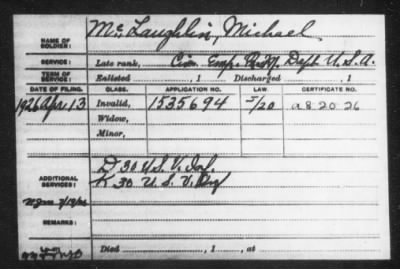 NAME OF SOLDIER: McLaughlin, Michael
SERVICE: Late rank, Civ. Emp. Q.M. Dept. U.S.A.
TERM OF SERVICE: Enlisted , 1 Discharged , 1
DATE OF FILING. CLASS. APPLICATION NO. LAW. CERTIFICATE NO.
1926 Apr. 13 Invalid, 1535694 5/20 a 8 20 26
Widow,
Minor,
ADDITIONAL SERVICES: D 30 U.S.V. Inf.
K 30 U.S.V. Inf
REMARKS:
Died , 1 , at